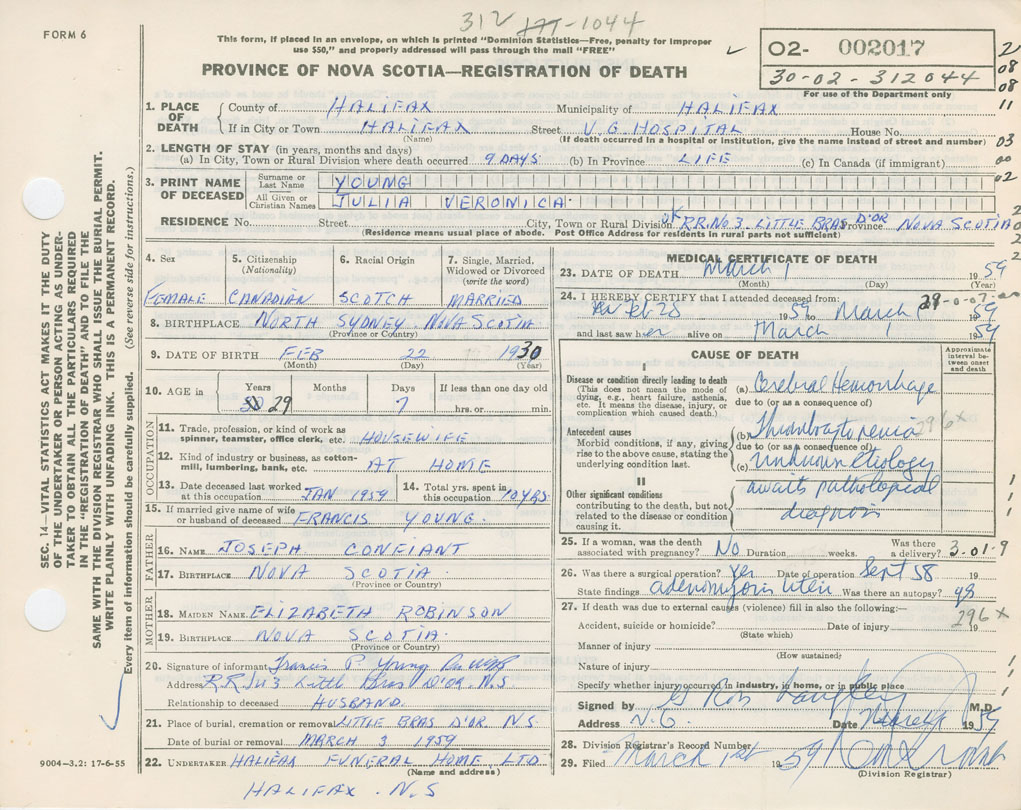 312 177-1044
FORM 6
This form, if placed in an envelope, on which is printed "Dominion Statistics—Free, penalty for improper
use $50," and properly addressed will pass through the mail "FREE"
PROVINCE OF NOVA SCOTIA—REGISTRATION OF DEATH
O2- 002017
30-02-312044
For use of the Department only
2
08
08
11
03
00
02
2
02
2
1. PLACE OF DEATH
County of HALIFAX Municipality of HALIFAX
If in City or Town HALIFAX Street V.G. HOSPITAL House No.
(Name) (If death occurred in a hospital or institution, give the name instead of street and number)
2. LENGTH OF STAY (in years, months and days)
(a) In City, Town or Rural Division where death occurred 9 DAYS (b) In Province LIFE (c) In Canada (if immigrant)
3. PRINT NAME OF DECEASED
Surname or Last Name YOUNG
All Given or Christian Names JULIA VERONICA
RESIDENCE No. Street City, Town or Rural Division R.R. No 3. LITTLE BRAS D'OR Province NOVA SCOTIA
(Residence means usual place of abode. Post Office Address for residents in rural parts not sufficient)
4. Sex
FEMALE
5. Citizenship (Nationality)
CANADIAN
6. Racial Origin
SCOTCH
7. Single, Married, Widowed or Divorced (write the word)
MARRIED
8. BIRTHPLACE NORTH SYDNEY. NOVA SCOTIA
(Province or Country)
9. DATE OF BIRTH FEB 22 1930
(Month) (Day) (Year)
10. AGE in
Years Months Days If less than one day old
29 7 hrs. or min.
OCCUPATION
11. Trade, profession, or kind of work as
spinner, teamster, office clerk, etc. HOUSEWIFE
12. Kind of industry or business, as cotton-
mill, lumbering, bank, etc. AT HOME
13. Date deceased last worked
at this occupation JAN 1959
14. Total yrs. spent in
this occupation 10 YRS.
15. If married give name of wife
or husband of deceased FRANCIS YOUNG.
FATHER
16. NAME JOSEPH CONFIANT
17. BIRTHPLACE NOVA SCOTIA
(Province or Country)
MOTHER
18. MAIDEN NAME ELIZABETH ROBINSON
19. BIRTHPLACE NOVA SCOTIA.
(Province or Country)
20. Signature of informant Francis P. Young
Address R.R. No 3 Little Bras D'OR. N.S
Relationship to deceased HUSBAND.
21. Place of burial, cremation or removal LITTLE BRAS D'OR N.S.
Date of burial or removal MARCH 3 1959
22. UNDERTAKER HALIFAX FUNERAL HOME LTD.
(Name and address)
HALIFAX. N.S
9004-3.2: 17-6-55
SEC. 14—VITAL STATISTICS ACT MAKES IT THE DUTY
OF THE UNDERTAKER OR PERSON ACTING AS UNDER-
TAKER TO OBTAIN ALL THE PARTICULARS REQUIRED
IN THE "REGISTRATION OF DEATH" AND TO FILE THE
SAME WITH THE DIVISION REGISTRAR WHO SHALL ISSUE THE BURIAL PERMIT.
WRITE PLAINLY WITH UNFADING INK. THIS IS A PERMANENT RECORD.
Every item of information should be carefully supplied. (See reverse side for instructions.)
MEDICAL CERTIFICATE OF DEATH
23. DATE OF DEATH March 1 1959
(Month) (Day) (Year)
24. I HEREBY CERTIFY that I attended deceased from: 29-0-07-00
Feb 20 1959 to March 1 1959
and last saw her alive on March 1 1959
CAUSE OF DEATH
Approximate interval between onset and death
I
Disease or condition directly leading to death
(This does not mean the mode of
dying, e.g., heart failure, asthenia,
etc. It means the disease, injury, or
complication which caused death.)
(a) Cerebral Hemorrhage
due to (or as a consequence of)
Antecedent causes
Morbid conditions, if any, giving
rise to the above cause, stating the
underlying condition last.
(b) Thrombocytopenia 296x
due to (or as a consequence of)
(c) unknown etiology
II
Other significant conditions
contributing to the death, but not
related to the disease or condition
causing it.
awaits pathological
diagnosis
1
1
1
25. If a woman, was the death
associated with pregnancy? No Duration weeks. Was there
a delivery? 3-01-9
26. Was there a surgical operation? Yes Date of operation Sept 58 19
State findings adenomyosis uteri Was there an autopsy? yes
27. If death was due to external causes (violence) fill in also the following:— 296x
Accident, suicide or homicide? Date of injury 19
(State which)
Manner of injury
(How sustained)
Nature of injury
Specify whether injury occurred in industry, in home, or in public place
1
1
1
Signed by Ross Langley M.D.
Address Date March 1 1959
28. Division Registrar's Record Number
29. Filed March 1st 1959
(Division Registrar)